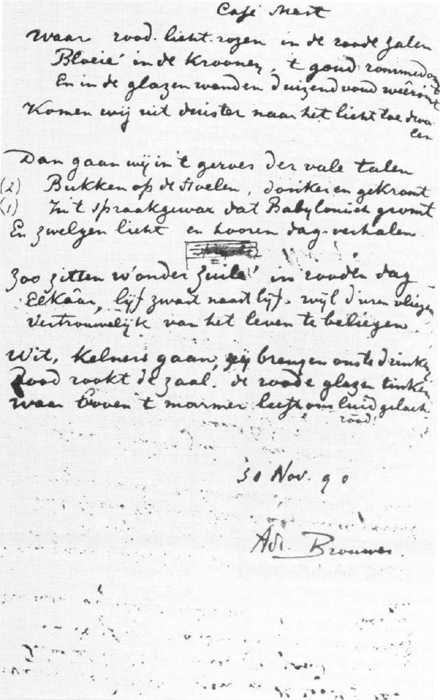 Café Mast
Waar rood licht rozen in de roode zalen
Bloeië in de kroonen, 't goud rommedom
En in de glazen wanden duizendvoud weerom
Komen wij uit duister naar het licht toe dwa
len
Dan gaan wij in 't geroes der vale talen
(2) Bukken op de stoelen, donker en gekromt
(1) In 't spraakgewar dat Babylonisch gromt
En zwelgen licht en hooren dag-verhalen
Zoo zitten w' onder zuile' in rooden dag
Elkâar, lijf zwart naast lijf. wijl d'uren vliegen
Vertrouwelijk van het leven te beliegen
Wit, kelners gaan, zij brengen ons te drinken
Rood rookt de zaal. de roode glazen tinken
Waar boven 't marmer leeft ons luid gelach
rood
30 Nov. 90
Adr. Brouwer